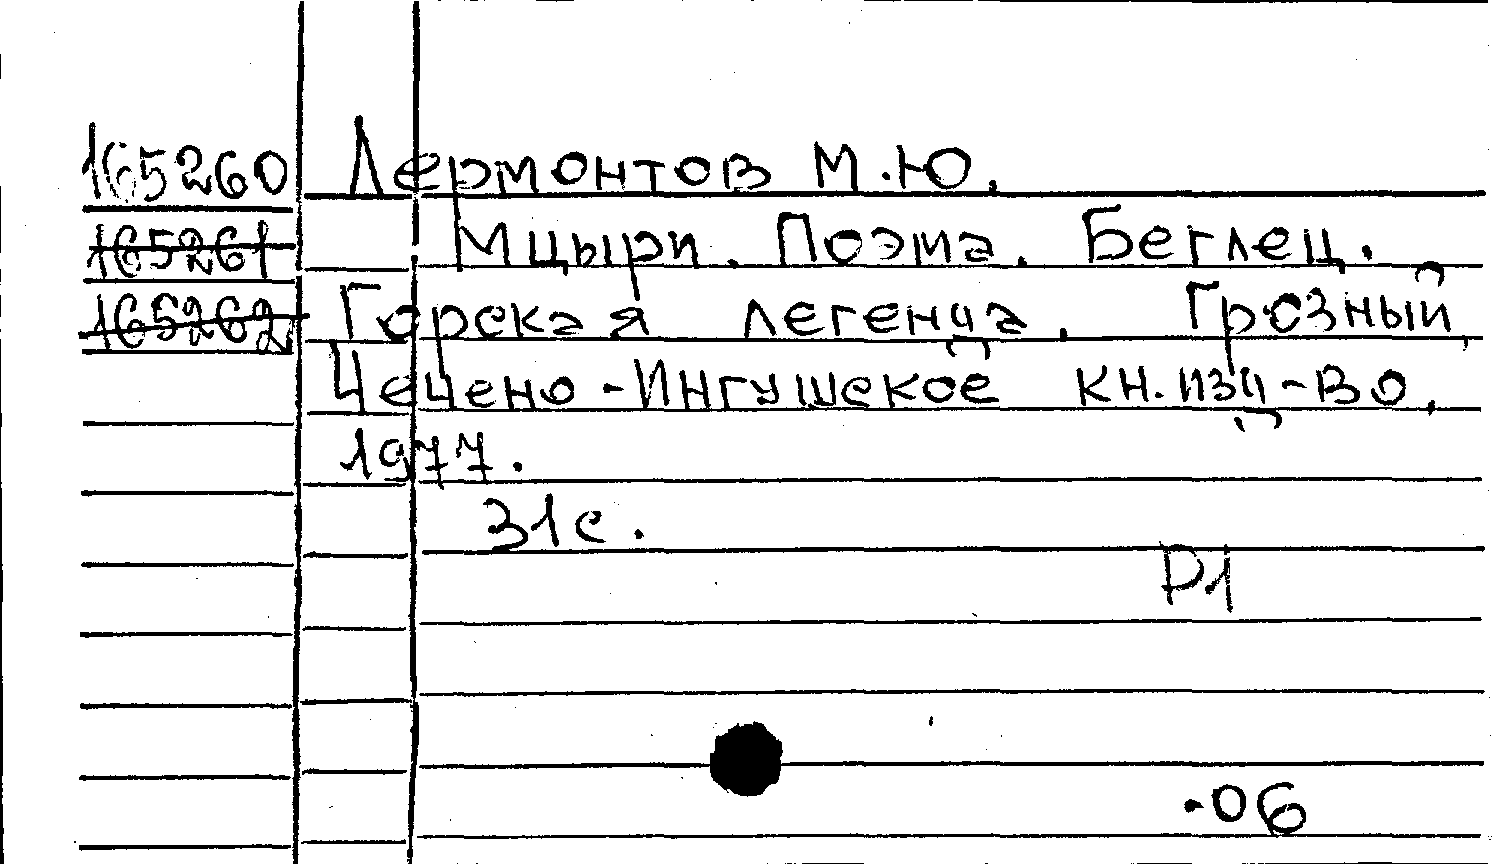 165260 Лермонтов М.Ю.
165261 Мцыри. Поэма. Беглец.
165262 Горская легенда. Грозный,
Чечено-Ингушское кн. изд-во,
1977.
31с.
Р1
.06